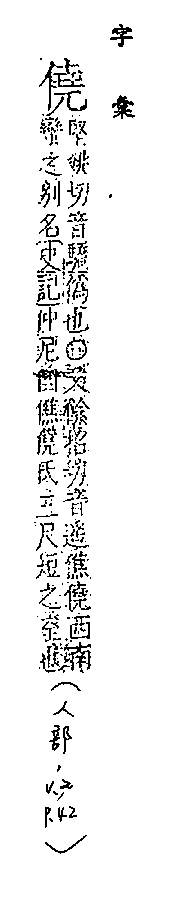 字彙
僥
堅姚切音驕僞也○又餘招切音遥僬僥西南
蠻之别名史記仲尼曰僬僥氏三尺短之至也
(人部,
V.2
P.42)